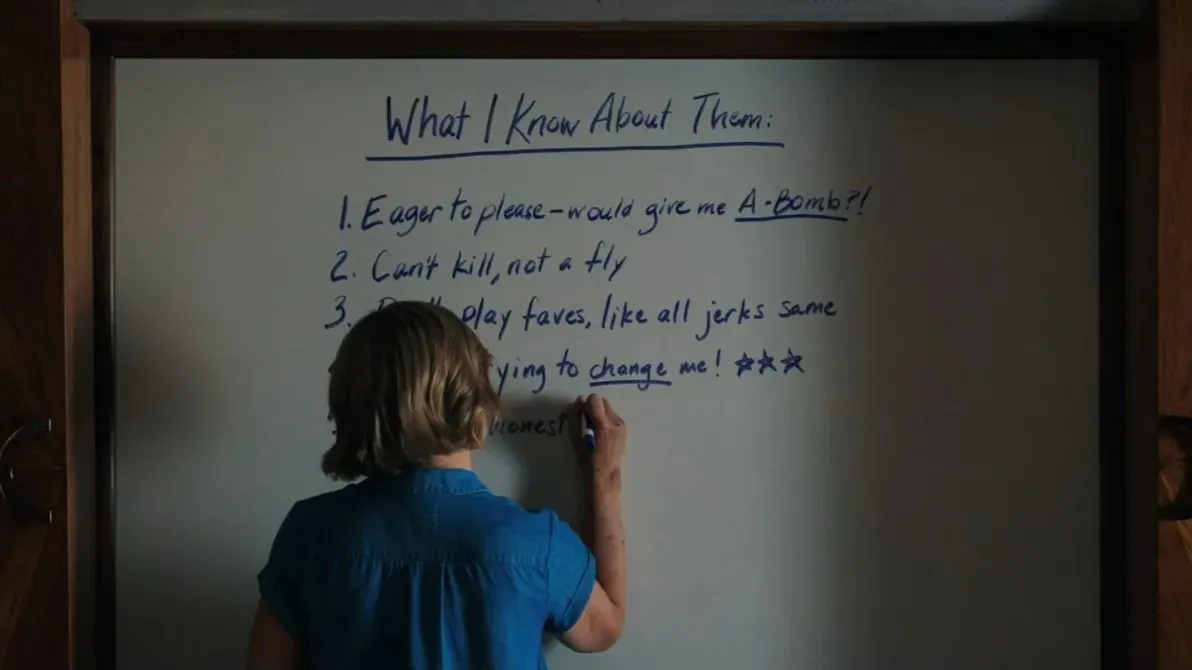 What I Know About Them:
1. Eager to please - would give me A-Bomb?!
2. Can't kill, not a fly
3. play faves, like all jerks same
to change me! ☆☆☆
honest